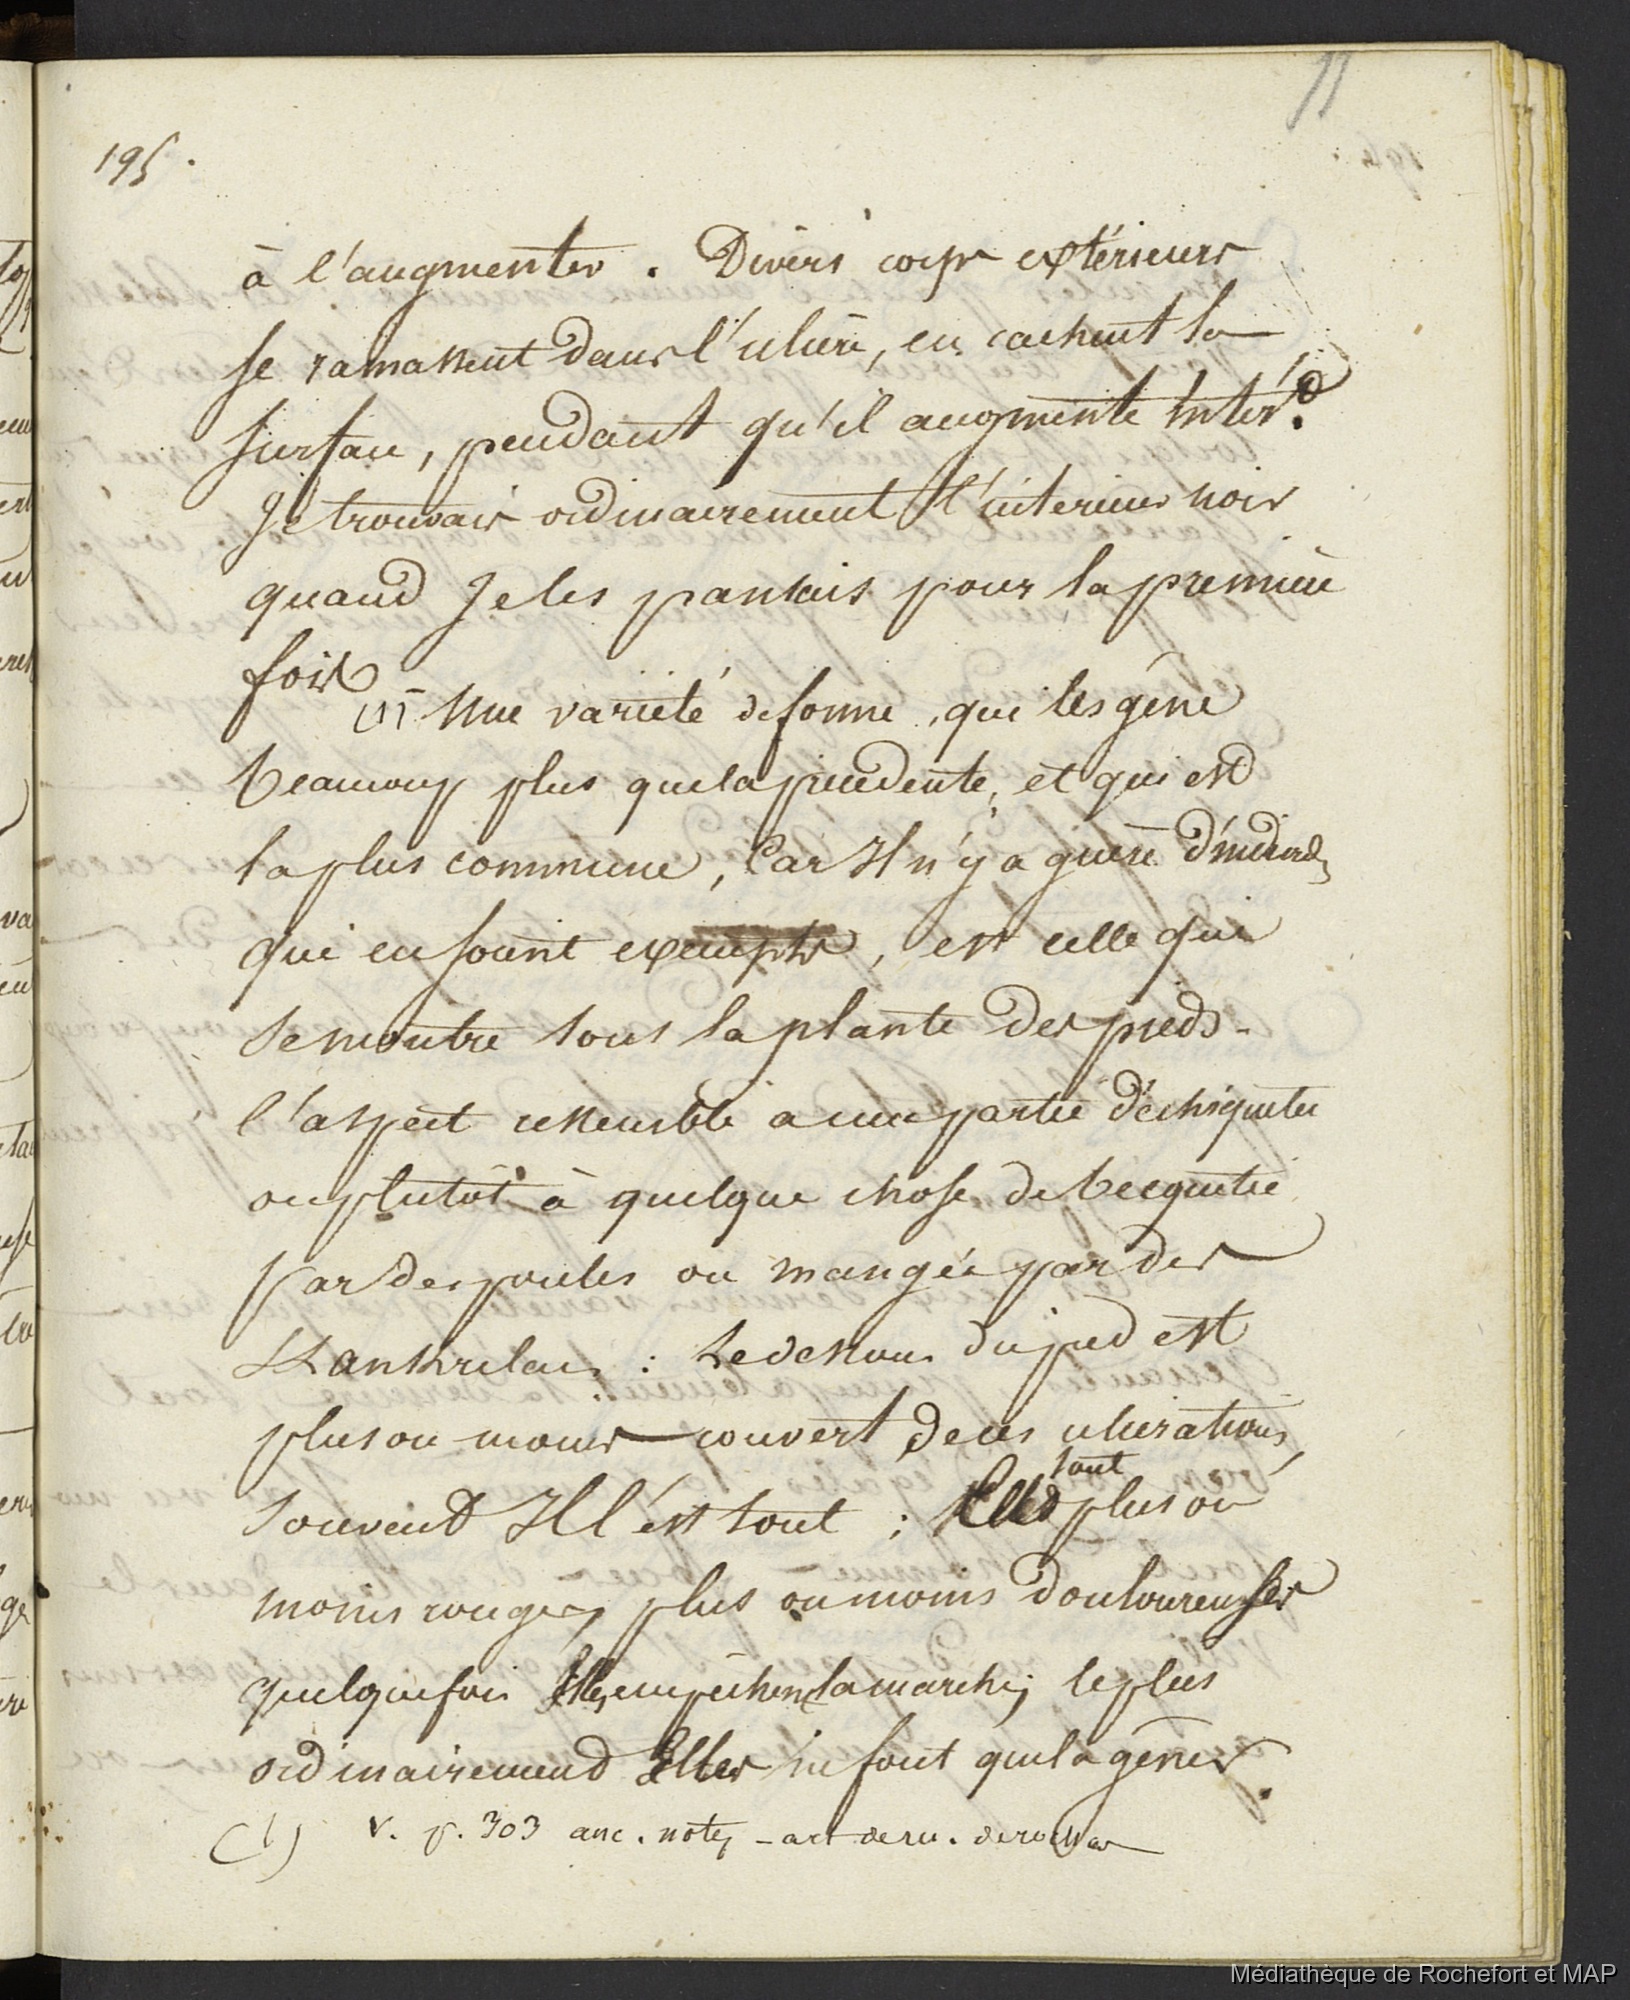 11
195.
à l'augmenter. Divers corps extérieurs
se ramassent dans l'ulcère, en cachent la
surface, pendant qu'il augmente intér.t
Je trouvais ordinairement l'interieur noir
quand Je les pansais pour la première
fois
(1) Une varieté de forme, qui les géne
beaucoup plus que la precedente, et qui est
la plus commune, Car Il n'y a guère d'individus
qui en soient exempts, est celle qui
se montre sous la plante des pieds.
l'aspect ressemble a une partie déchiquetée
ou plutôt à quelque chose de becquetée
par des poules ou mangée par des
Kankrelas : Le dessous du pied est
plus ou moins couvert de ces ulcérations,
souvent Il l'est tout ; Elles sont plus ou
moins rouges, plus ou moins douloureuses
quelquefois Elles empêchent la marche, le plus
ordinairement Elles ne font que la gêner.
(1) v. p. 303 anc. notes - art de
Médiathèque de Rochefort et MAP